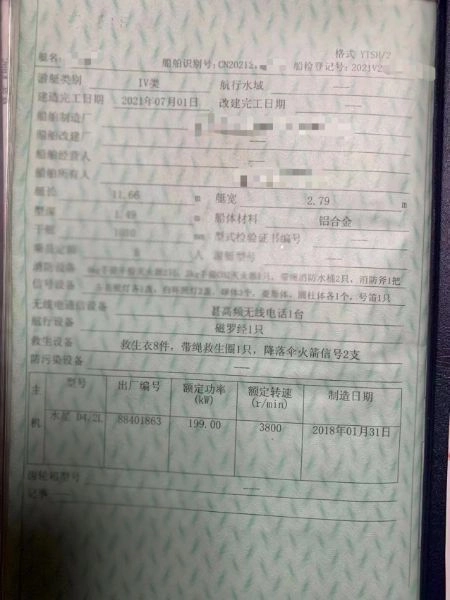 格式 YTSH/2
艇名: 船舶识别号: CN2021 船检登记号: 2021V2
游艇类别 IV类 航行水域 ——
建造完工日期 2021年07月01日 改建完工日期 ——
船舶制造厂
船舶改建厂
船舶经营人
船舶所有人
艇长 11.66 m 艇宽 2.79 m
型深 1.49 m 船体材料 铝合金
干舷 mm 型式检验证书编号 ——
乘员定额 8 人 游艇型号 ——
消防设备 带绳消防水桶2只, 消防斧1把
信号设备 圆柱体各1个, 号笛1只
无线电通信设备 甚高频无线电话1台
航行设备 磁罗经1只
救生设备 救生衣8件, 带绳救生圈1只, 降落伞火箭信号2支
防污染设备 ——
主机 型号 出厂编号 额定功率 (kW) 额定转速 (r/min) 制造日期
水星 D4.2L 88401863 199.00 3800 2018年01月31日
齿轮箱型号 ——
记事 ——